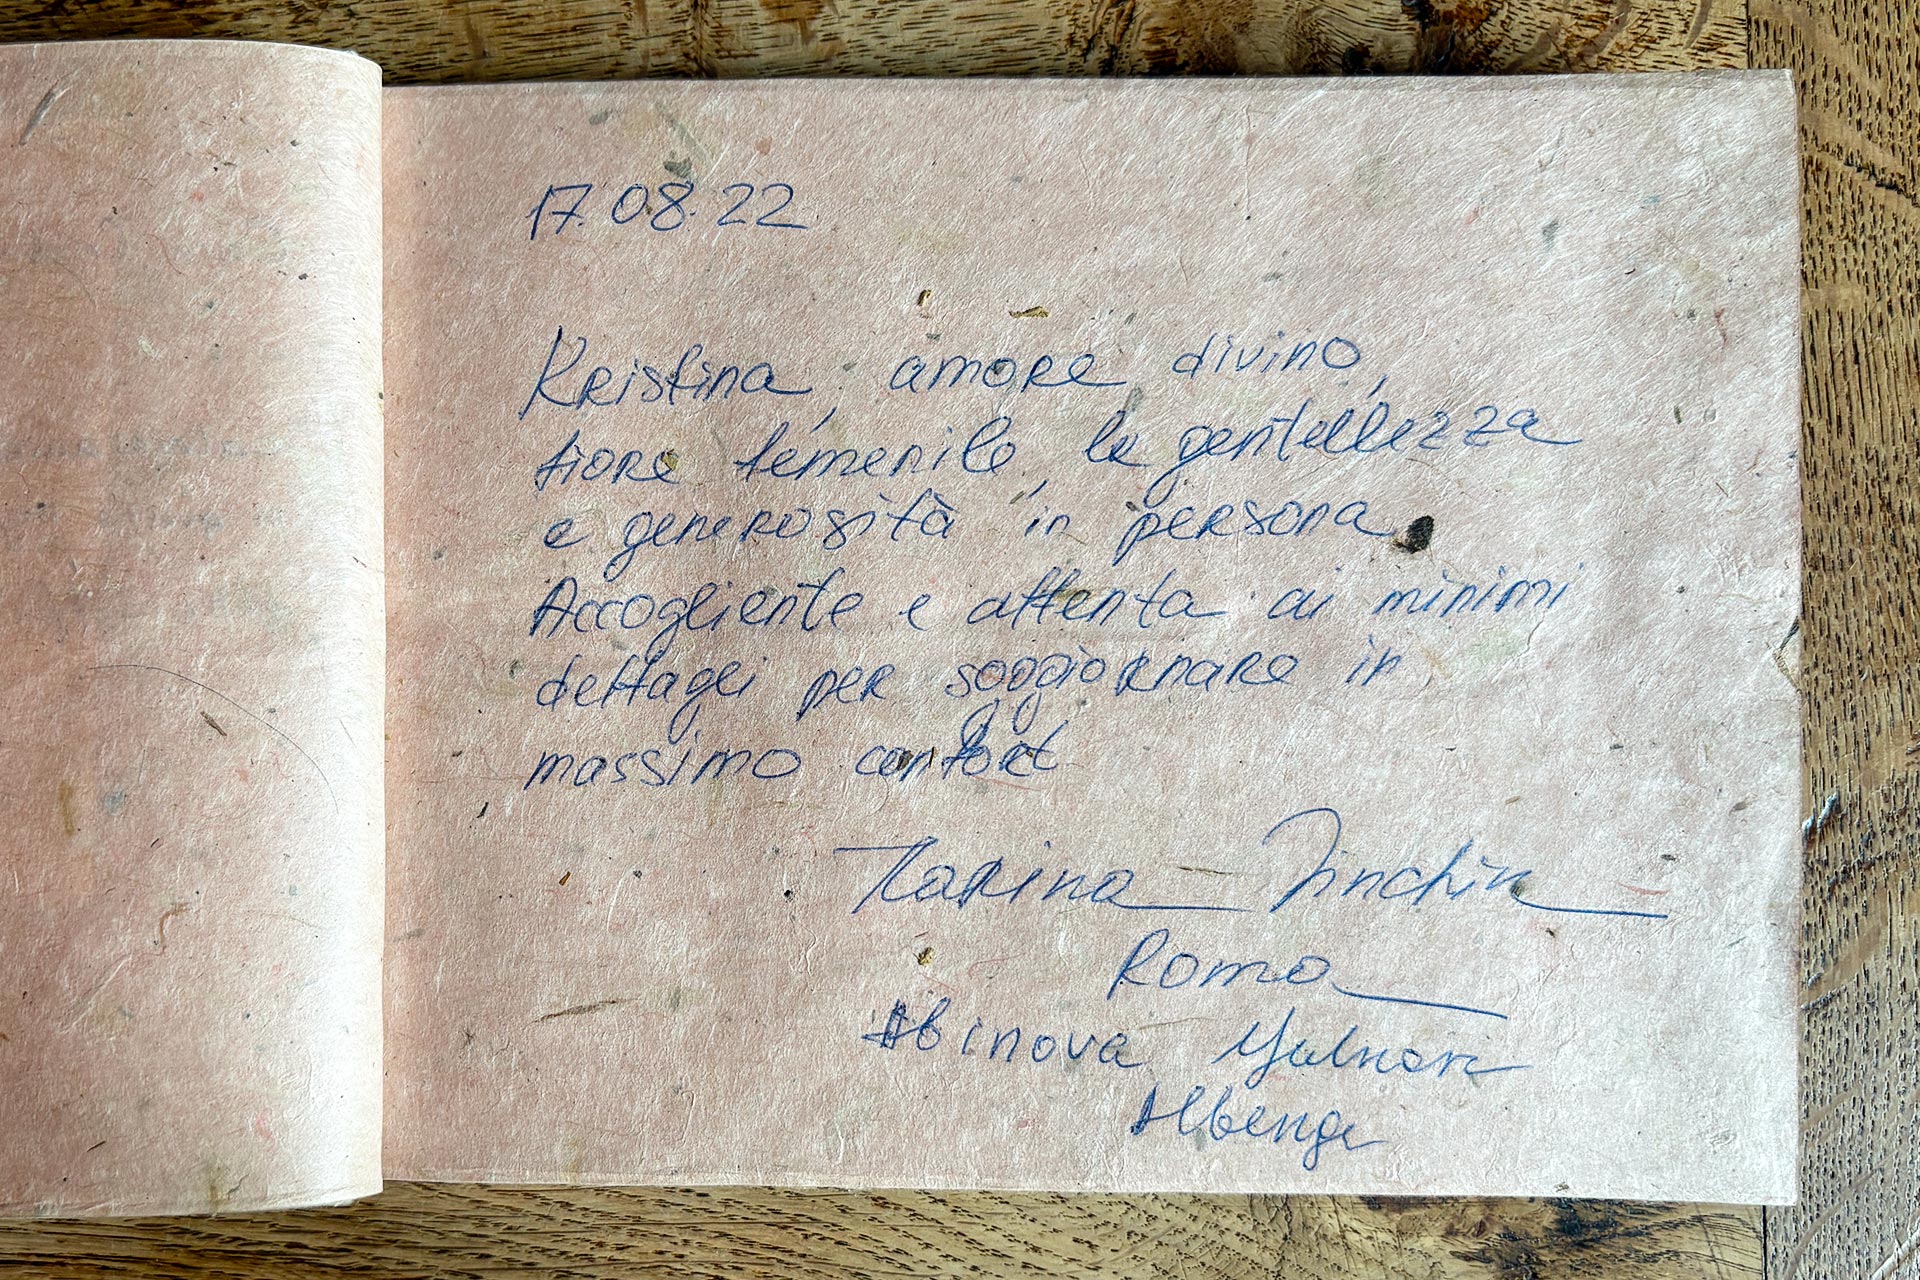 17.08.22
Kristina, amore divino,
fiore femenile, la gentellezza
e generosità in persona.
Accogliente e attenta ai minimi
dettagli per soggiornare in
massimo confort
Karina
Roma
Albenga